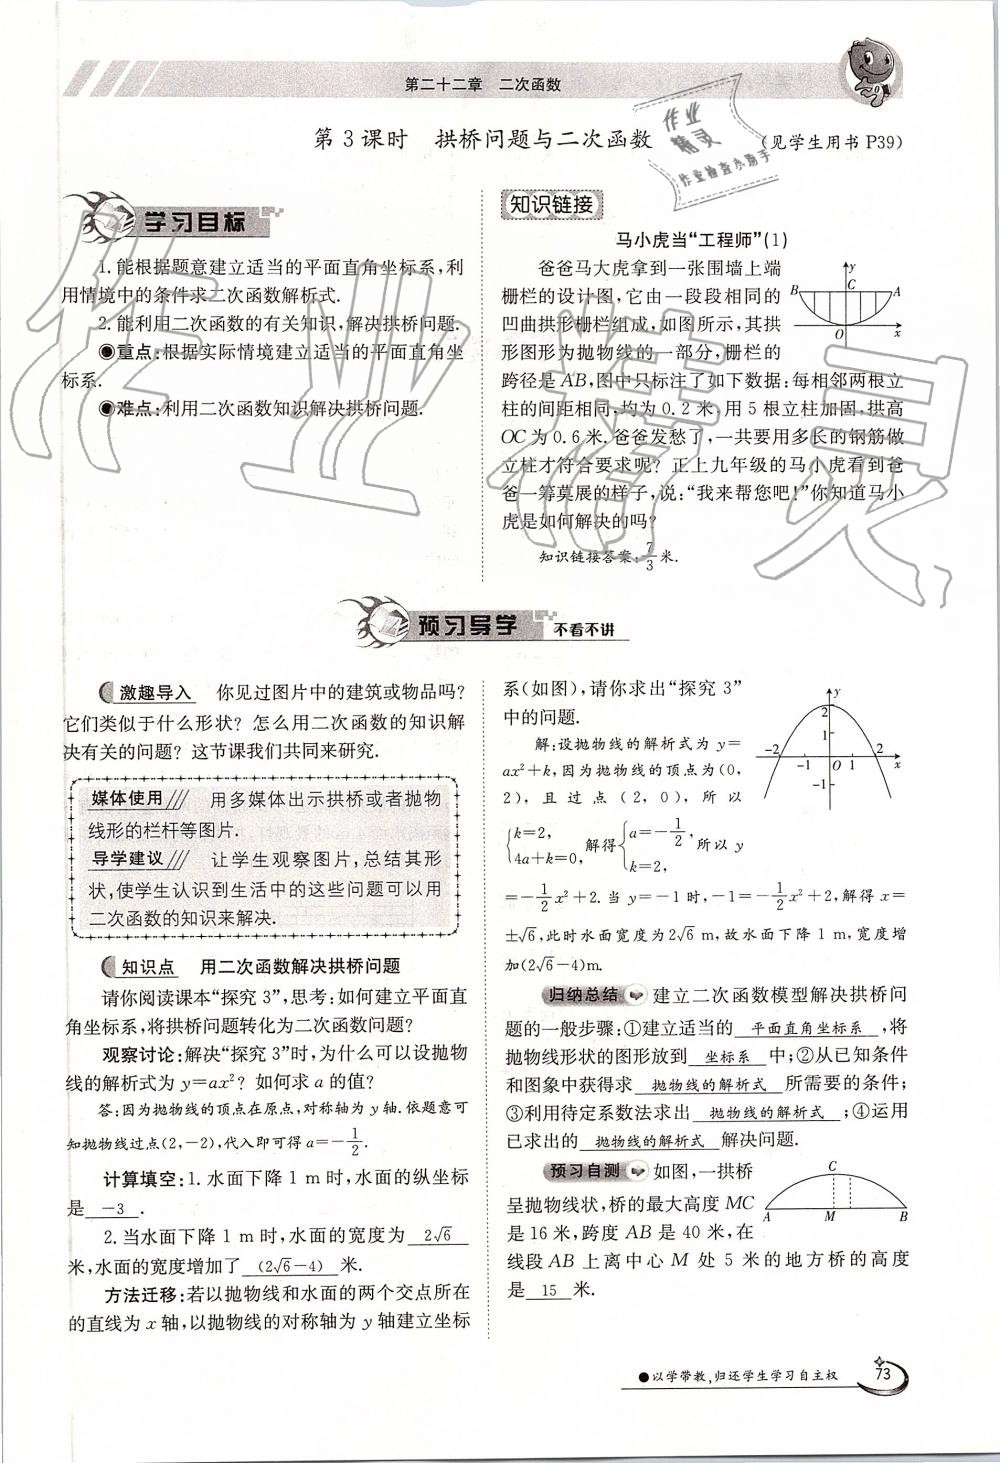 第二十二章 二次函数
第3课时 拱桥问题与二次函数
(见学生用书 P39)
作业
精灵
作业检查小助手
学习目标
1.能根据题意建立适当的平面直角坐标系,利
用情境中的条件求二次函数解析式.
2.能利用二次函数的有关知识,解决拱桥问题.
◉重点:根据实际情境建立适当的平面直角坐
标系.
◉难点:利用二次函数知识解决拱桥问题.
知识链接
马小虎当“工程师”(1)
爸爸马大虎拿到一张围墙上端
栅栏的设计图,它由一段段相同的
凹曲拱形栅栏组成,如图所示,其拱
形图形为抛物线的一部分,栅栏的
跨径是AB,图中只标注了如下数据:每相邻两根立
柱的间距相同,均为0.2米,用5根立柱加固,拱高
OC为0.6米.爸爸发愁了,一共要用多长的钢筋做
立柱才符合要求呢?正上九年级的马小虎看到爸
爸一筹莫展的样子,说:“我来帮您吧!”你知道马小
虎是如何解决的吗?
知识链接答案:7/3米.
y
B C A
O x
作业精灵
预习导学 不看不讲
激趣导入 你见过图片中的建筑或物品吗?
它们类似于什么形状?怎么用二次函数的知识解
决有关的问题?这节课我们共同来研究.
媒体使用/// 用多媒体出示拱桥或者抛物
线形的栏杆等图片.
导学建议/// 让学生观察图片,总结其形
状,使学生认识到生活中的这些问题可以用
二次函数的知识来解决.
知识点 用二次函数解决拱桥问题
请你阅读课本“探究3”,思考:如何建立平面直
角坐标系,将拱桥问题转化为二次函数问题?
观察讨论:解决“探究3”时,为什么可以设抛物
线的解析式为y=ax²?如何求a的值?
答:因为抛物线的顶点在原点,对称轴为y轴.依题意可
知抛物线过点(2,-2),代入即可得a=-1/2.
计算填空:1.水面下降1 m时,水面的纵坐标
是 -3 .
2.当水面下降1 m时,水面的宽度为 2√6
米,水面的宽度增加了 (2√6-4) 米.
方法迁移:若以抛物线和水面的两个交点所在
的直线为x轴,以抛物线的对称轴为y轴建立坐标
系(如图),请你求出“探究3”
中的问题.
解:设抛物线的解析式为y=
ax²+k,因为抛物线的顶点为(0,
2),且过点(2,0),所以
{k=2, 4a+k=0, 解得{a=-1/2, k=2, 所以y
=-1/2x²+2.当y=-1时,-1=-1/2x²+2,解得x=
±√6,此时水面宽度为2√6 m,故水面下降1 m,宽度增
加(2√6-4)m.
y
2
1
-2 -1 O 1 2 x
-1
归纳总结 建立二次函数模型解决拱桥问
题的一般步骤:①建立适当的 平面直角坐标系 ,将
抛物线形状的图形放到 坐标系 中;②从已知条件
和图象中获得求 抛物线的解析式 所需要的条件;
③利用待定系数法求出 抛物线的解析式 ;④运用
已求出的 抛物线的解析式 解决问题.
预习自测 如图,一拱桥
呈抛物线状,桥的最大高度MC
是16米,跨度AB是40米,在
线段AB上离中心M处5米的地方桥的高度
是 15 米.
C
A M B
●以学带教,归还学生学习自主权
73